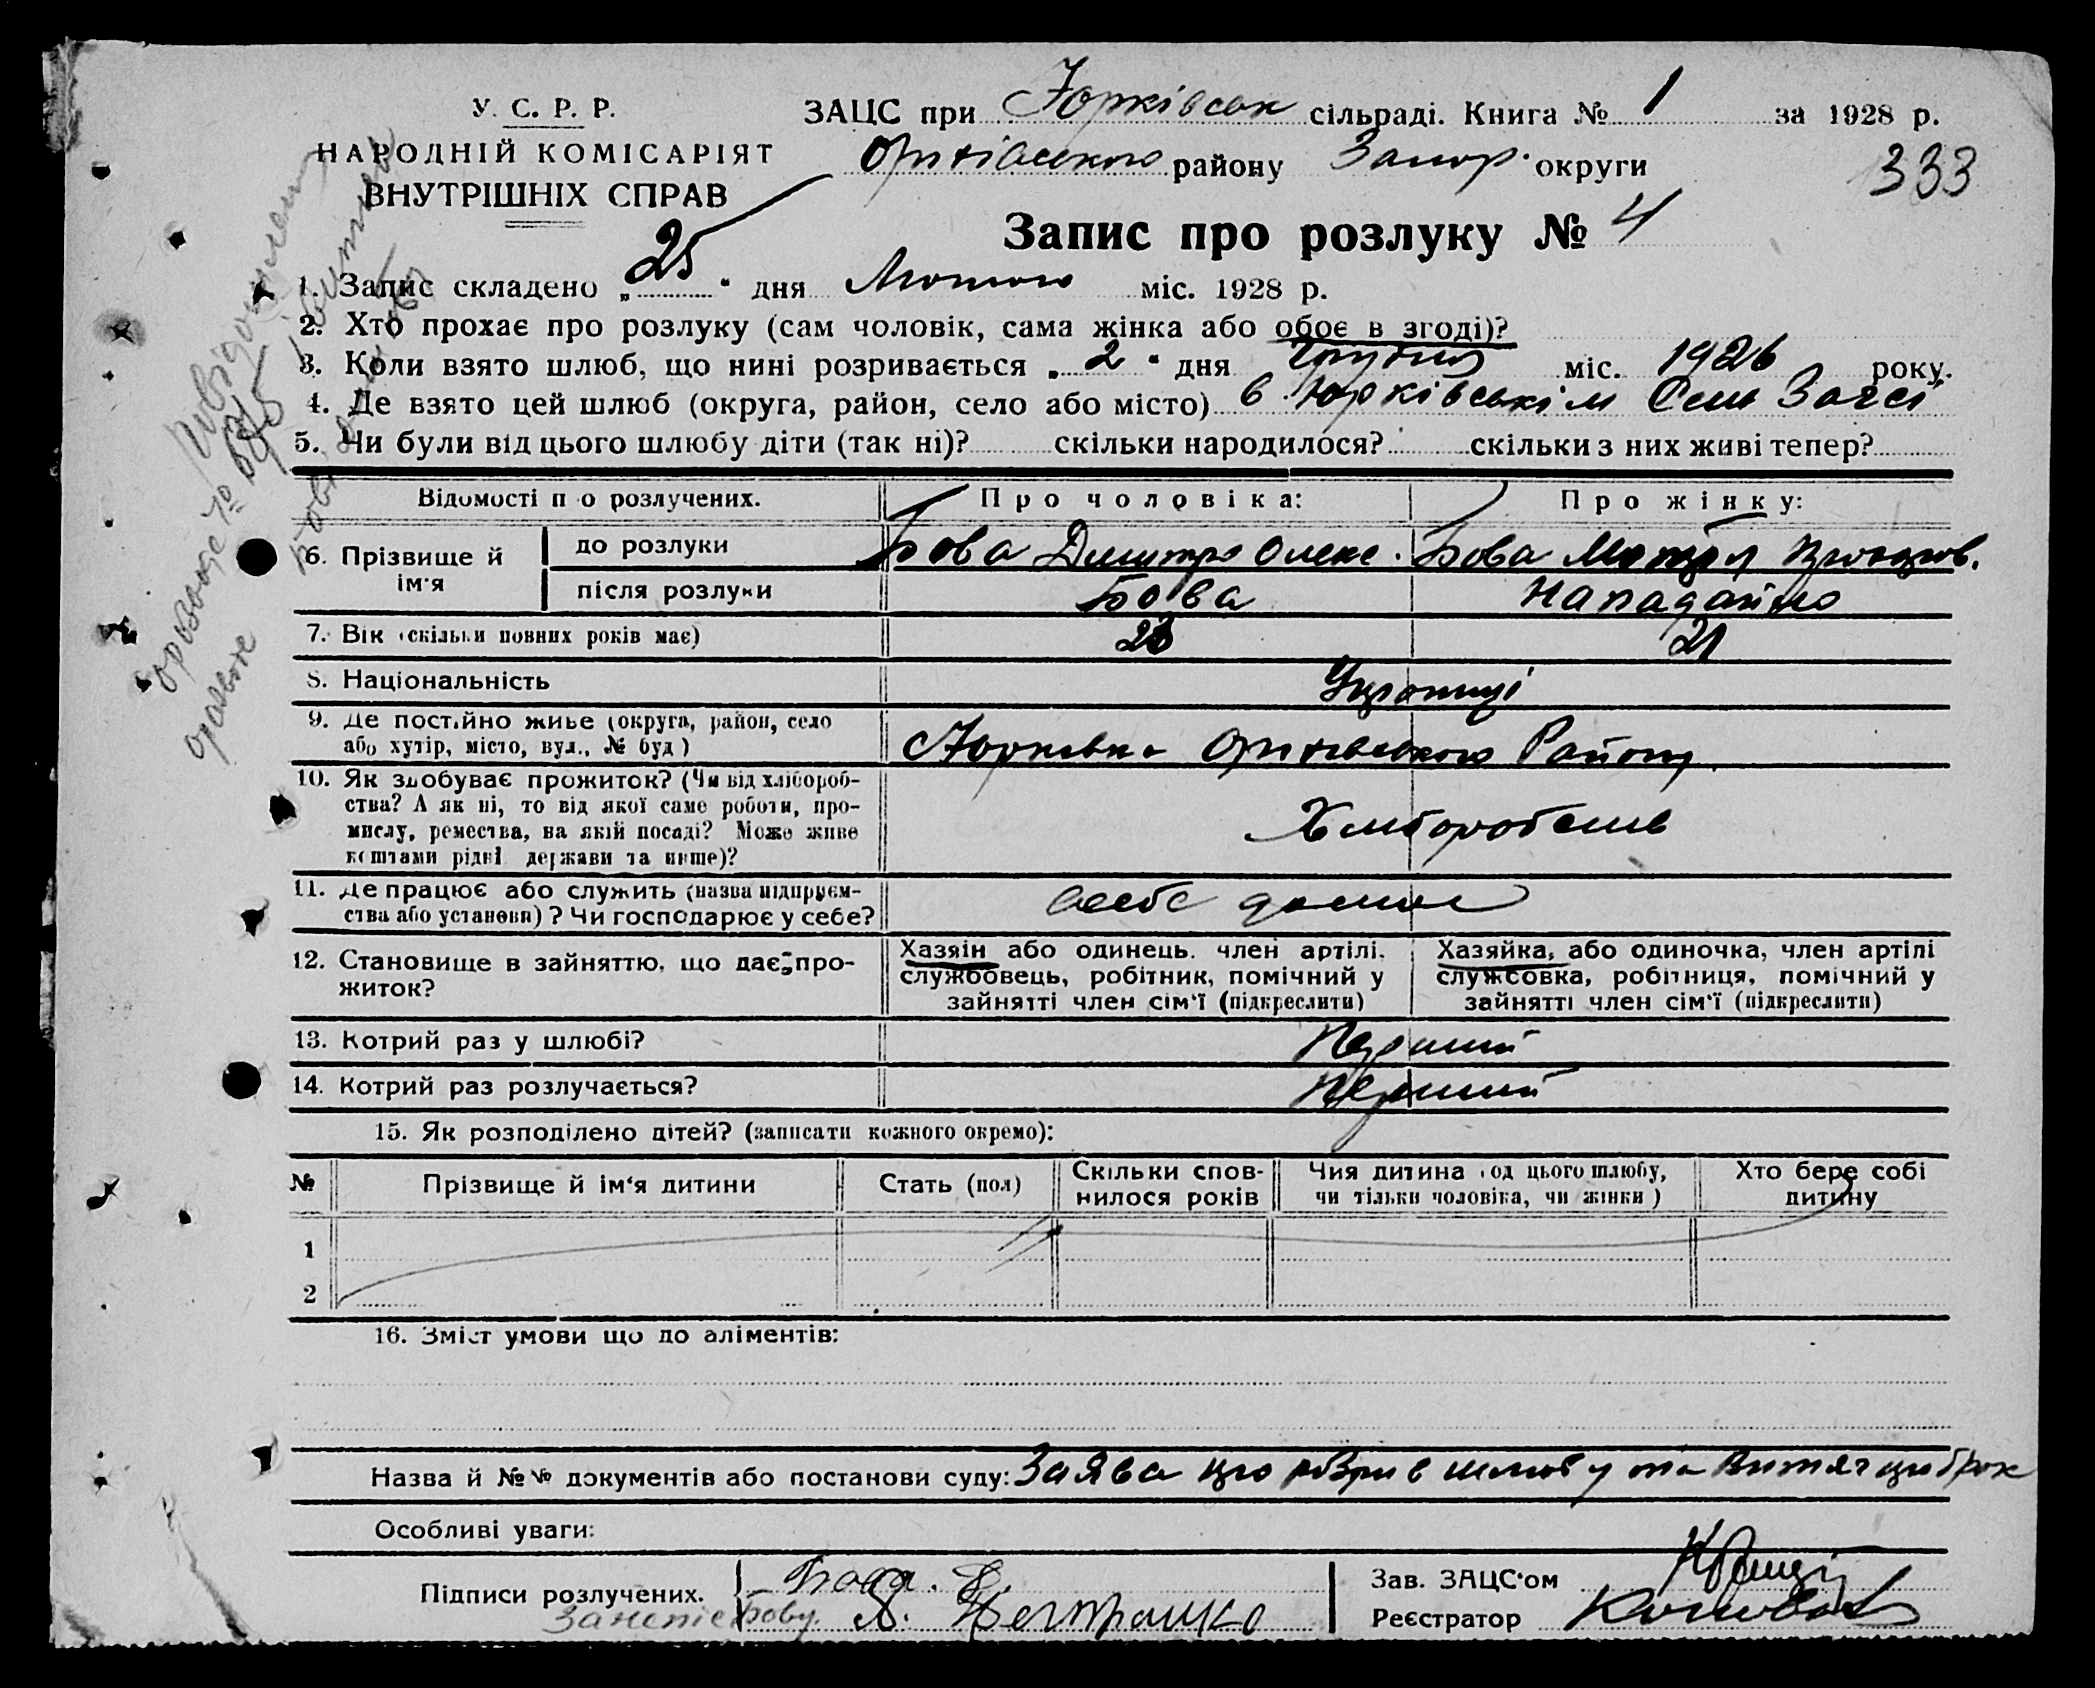 У. С. Р. Р.
НАРОДНІЙ КОМІСАРІЯТ
ВНУТРІШНІХ СПРАВ
ЗАЦС при Юрківськ сільраді. Книга № 1 за 1928 р.
Оріхівського району Запор. округи
333
Запис про розлуку № 4
1. Запис складено „25“ дня Лютого міс. 1928 р.
2. Хто прохає про розлуку (сам чоловік, сама жінка або обоє в згоді)?
3. Коли взято шлюб, що нині розривається „2“ дня Грудня міс. 1926 року.
4. Де взято цей шлюб (округа, район, село або місто) в Юрківськім Сель Загсі
5. Чи були від цього шлюбу діти (так ні)? скільки народилося? скільки з них живі тепер?
Відомості про розлучених. Про чоловіка: Про жінку:
6. Прізвище й ім'я
до розлуки Бова Дмитро Олекс. Бова Мотря
після розлуки Бова Нападайло
7. Вік (скільки повних років має) 23 21
8. Національність Українці
9. Де постійно живе (округа, район, село або хутір, місто, вул., № буд) Юрківка Оріхівського Району
10. Як здобуває прожиток? (Чи від хлібороб-
ства? А як ні, то від якої саме роботи, про-
мислу, ремества, на якій посаді? Може живе
коштами рідні держави та инше)?
Хліборобством
11. Де працює або служить (назва підприєм-
ства або установи)? Чи господарює у себе?
себе дома
12. Становище в зайняттю, що дає про-
житок?
Хазяін або одинець. член артілі,
службовець, робітник, помічний у
зайнятті член сім'ї (підкреслити)
Хазяйка, або одиночка, член артілі
службовка, робітниця, помічний у
зайнятті член сім'ї (підкреслити)
13. Котрий раз у шлюбі? Перший
14. Котрий раз розлучається? Перший
15. Як розподілено дітей? (записати кожного окремо):
№ Прізвище й ім'я дитини Стать (пол) Скільки спов-
нилося років Чия дитина (од цього шлюбу,
чи тільки чоловіка, чи жінки) Хто бере собі
дитину
1
2
16. Зміст умови що до аліментів:
Назва й №№ документів або постанови суду: Заява про розрив шлюбу та Витяг про брак
Особливі уваги:
Підписи розлучених. Бова. Д.
Зав. ЗАЦС'ом
Реєстратор